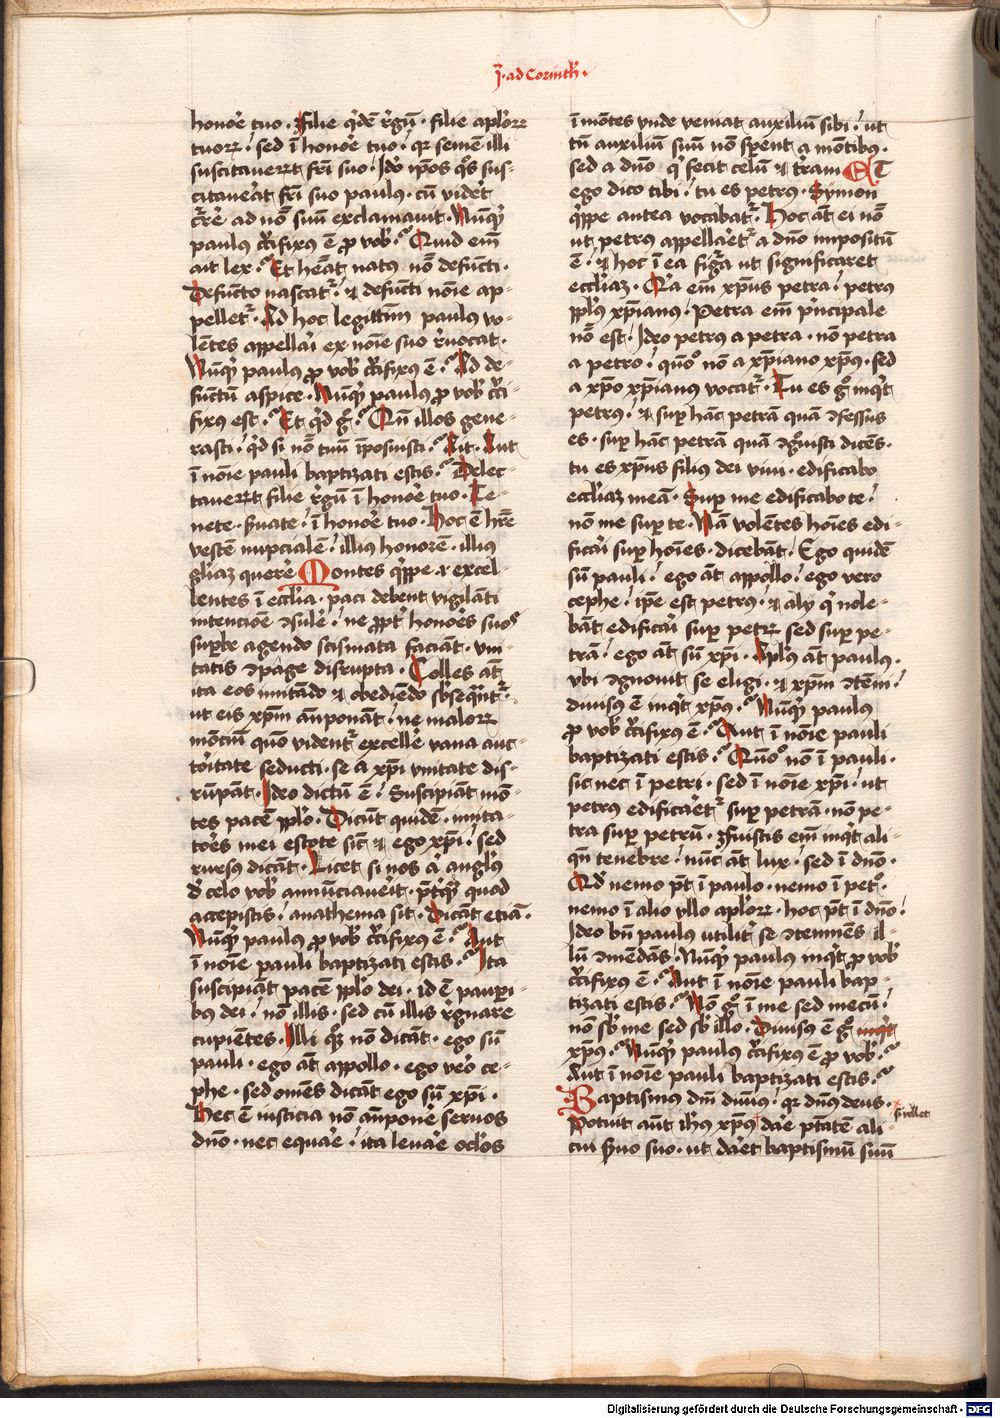 j ad Corinth .
honore tuo . filie q̄dē r̄gū . filie aplōꝝ
tuoꝝ / sed ī honore tuo / qꝛ semē illi
suscitaueꝛt fr̄i suo . Idō ip̄os q̄s sus-
citauāt fr̄i suo paulꝰ . cū vidēt
c̄rē ad nō suū exclamauit . Nūqͥd
paulꝰ c̄fixꝰ ē ꝓ vob . Quid em̄
ait lex . Et hēat natꝰ nō defūcti .
Defuncto nascatꝛ . ⁊ defuncti noīe ap-
pelletꝛ . Ad hoc legittim paulꝰ vo-
lētes appellaī ex noīe suo r̄uocat .
Nūqͥd paulꝰ ꝓ vob c̄fixꝰ ē . Ad de-
functū aspice . Nūqͥd paulꝰ ꝓ vob c̄i-
fixꝰ est . Et qͥd gͦ . Cū illos gene-
rasti . qͥd si nō tuū īposuisti . Ait . Aut
ī noīe pauli baptizati estis . Delec-
taueꝛt filie r̄gū ī honore tuo . Te-
nete . suate / ī honore tuo . hoc ē hr̄e
vestē nupcialē / illiꝰ honorē . illiꝰ
gl̄iaꝫ querē Montes qͥppe ⁊ excel-
lentes ī eccl̄ia . paci debent vigilāti
intencioē ꝯsulē / ne ꝓpt̄ honores suoˢ
supb̄e agendo scismata faciāt . vni-
tatis ꝯpāge disrupta . Colles āt
ita eos imitādo ⁊ obediēdo sb̄seqͣntꝛ .
ut eis xp̄m āuponāt / ne maloꝝ
mōciū quō videntꝛ excellē vana auc-
toritate seducti . se a xp̄i vnitate dis-
rūpāt . Ideo dictū ē / Suscipiāt mō-
tes pacē pplō . Dicāt quidē . imita-
tores mei estote sic̄ ⁊ ego xp̄i / sed
rursus dicāt . Licet si nos aͥ anglꝰ
d̄ celo vob annūciauēit . p̄tqͣ quod
accepistis / anathema sit . Dicāt etiā .
Nūqͥd paulꝰ ꝓ vob c̄fixꝰ ē . Aut
ī noīe pauli baptizati estis . Ita
suscipiāt pacē pplō dei . id ē paupi-
bꝰ dei / nō illis . sed cū illis r̄gnare
cupiētes . Illi qͦꝫ nō dicāt . ego sū
pauli . ego āt appollo . ego vēo ce-
phe . sed om̄es dicāt ego sū xp̄i .
hec ē iusticia nō āuponē seruos
dn̄o . nec equaē / ita leuaē oclōs
ī mōtes vnde veniat auxiliū sibi / ut
tn̄ auxiliū suū nō spent a mōtibꝰ .
sed a dn̄o qͥ fecit celū ⁊ tr̄am ET
ego dico tibi / tu es petrꝰ . Symon
qͥppe antea vocabatꝛ . hoc āt ei nō
ut petrꝰ appellaētꝛ a dn̄o impositū
ē / ⁊ hoc ī ea figͣ ut significaret
eccl̄iaꝫ . Qͥa em̄ xp̄us petra / petrꝰ
pplꝰ xp̄ianꝰ . Petra em̄ pͥncipale
nō est / Ideo petrꝰ a petra . nō petra
a petro / quōͦ nō a xp̄iano xp̄ꝰ . sed
a xp̄o xp̄ianꝰ vocatꝛ . Tu es gͦ inqͥt
petrꝰ . ⁊ sup hāc petrā quā ꝯfessus
es . sup hāc petrā quā ꝯgͦuisti dicēs .
tu es xp̄us filiꝰ dei viui . edificabo
eccl̄iaꝫ meā . Sup me edificabo te /
nō me sup te . Nā volētes hoīes edi-
ficaī sup hoīes . dicebāt / Ego quidē
sū pauli / ego āt appollo / ego vero
cephe / ip̄e est petrꝰ / ⁊ alij qͥ nole-
bāt edificaī sup petꝝ sed sup pe-
trā . ego āt sū xp̄i . Aplꝰ āt paulꝰ .
vbi ꝯgnouit se eligi . ⁊ xp̄m ꝯtēni /
diuisꝰ ē inqͥt xp̄ꝰ . Nūqͥd paulus
ꝓ vob c̄fixꝰ ē . Aut ī noīe pauli
baptizati estis . Quōͦ nō ī pauli .
sic nec ī petri . sed ī noīe xp̄i . ut
petrꝰ edificaētꝛ sup petrā . nō pe-
tra sup petrū . ffuistis em̄ inqͥt ali-
qn̄ tenebre / nūc āt lux . sed ī dn̄o .
Qd̄ nemo p̄t ī paulo . nemo ī petͦ .
nemo ī alio vllo aplōꝝ . hoc p̄t ī dn̄o /
Ideo bn̄ paulꝰ utilit̄ se ꝯtemnēs il-
lū ꝯmēdās . Nūqͥd paulꝰ inqͥt ꝓ vob
c̄fixꝰ ē . Aut ī noīe pauli bap-
tizati estis . Nō gͦ ī me sed mecū /
nō sb̄ me sed sb̄ illo . Diuisꝰ ē gͦ inqͥt
xp̄ꝰ . Nūqͥd paulus c̄fixꝰ ē ꝓ vob .
Aut ī noīe pauli baptizati estis .
Baptismus dn̄i diuiꝰ / qꝛ dn̄ꝰ deus .
Potuit aūt ih̄us xp̄ꝰ daē ptātē ali-
si vellet
cui s̄uo suo . ut daēt baptismū suū
Digitalisierung gefördert durch die Deutsche Forschungsgemeinschaft · DFG